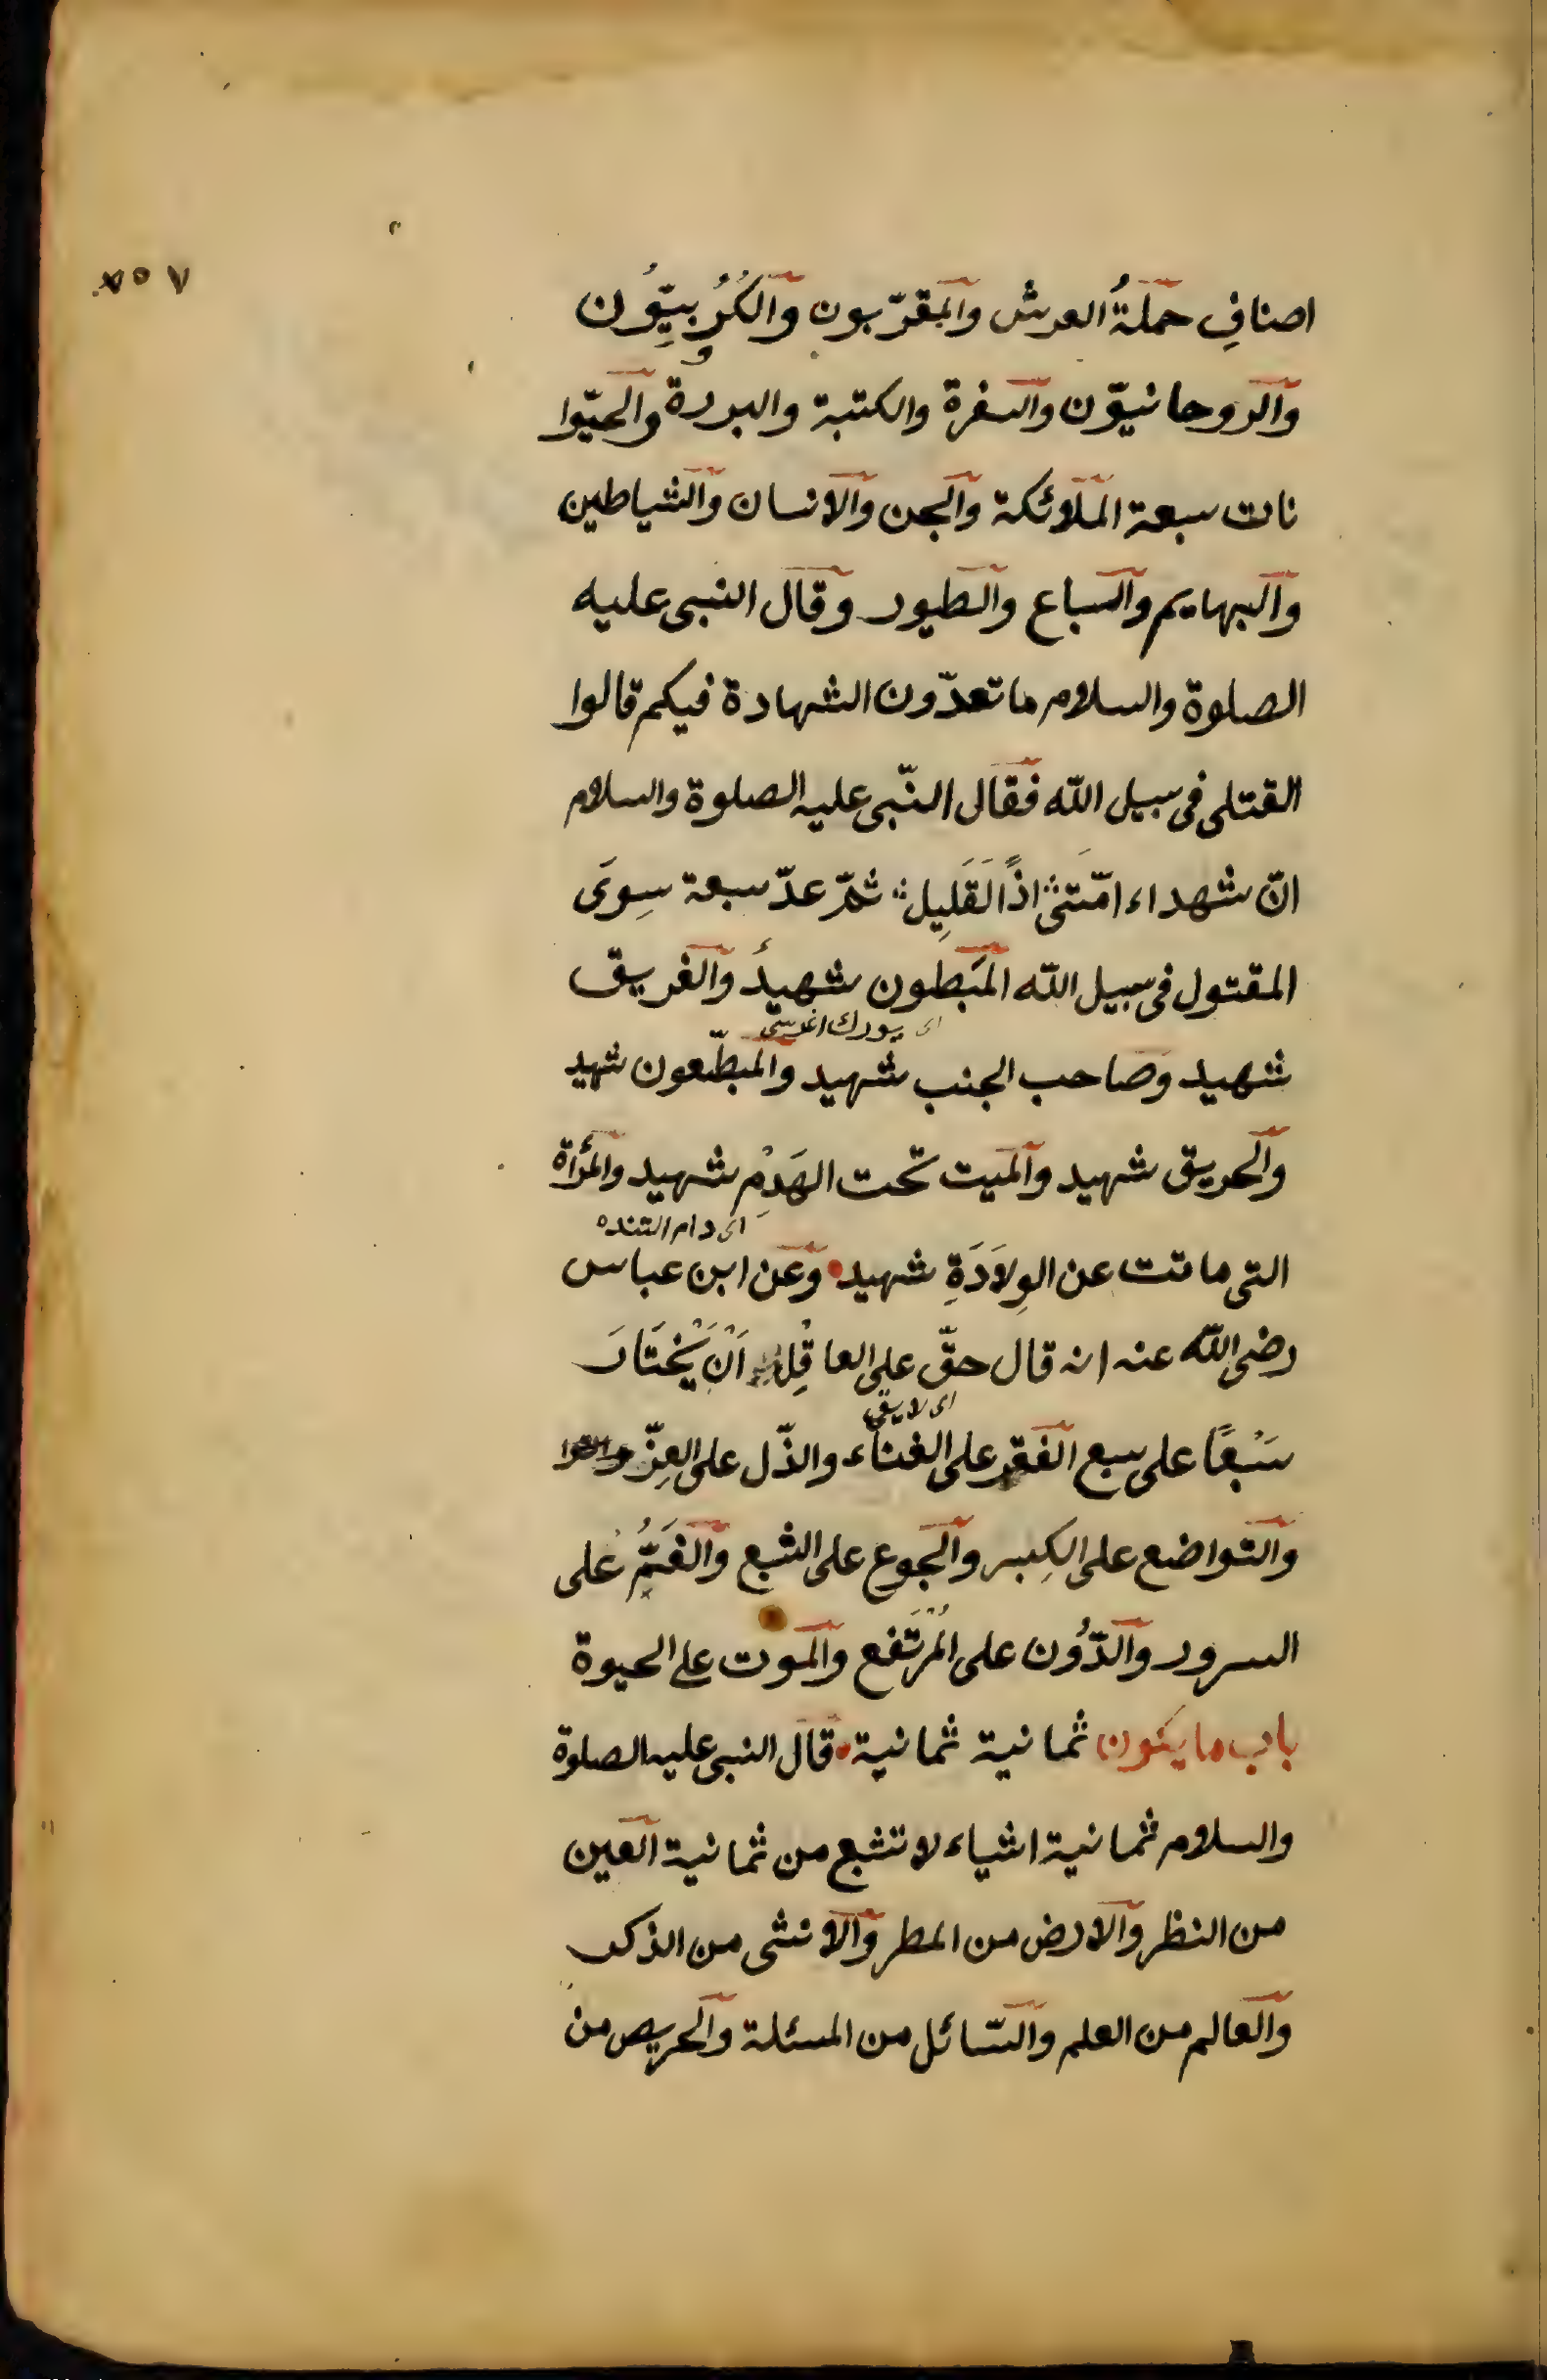 اصنافِ حملةُ العرش والمقرّبون والكُرُبِيُّون
والروحانيّون والسفرة والكتبة والبررة والحيّوا
نات سبعة الملائكة والجن والانسان والشياطين
والبهايم والسباع والطيور وقال النبى عليه
الصلوة والسلام ما تعدّون الشهادة فيكم قالوا
القتلى فى سبيل الله فقال النّبى عليه الصلوة والسلام
انّ شهداء امّتى اذًا لَقَلِيل ثمّ عدّ سبعة سِوَى
المقتول فى سبيل الله المَبطون شهيدُ والغريق
شهيد وصاحب الجنب شهيد والمطّعون شهيد
والحريق شهيد والميت تحت الهَدْمِ شهيد والمرأة
اى دام التنده
التى ماتت عن الوِلاَدَةِ شهيد وعن ابن عباس
رضى الله عنه انه قال حقّ على العاقِل اَنْ يَخْتَارَ
اى لايق
سَبْعًا على سبع الفقر على الغناء والذّل على العِزّ
والتواضع على الكِبر والجوع على الشبع والغَمُّ على
السرور والدُّون على المُرْتَفع والموت على الحيوة
باب ما يكون ثمانية ثمانية قال النبى عليه الصلوة
والسلام ثمانية اشياء لا تشبع من ثمانية العين
من النظر والارض من المطر والانثى من الذكر
والعالم من العلم والسّائل من المسئلة والحريص من